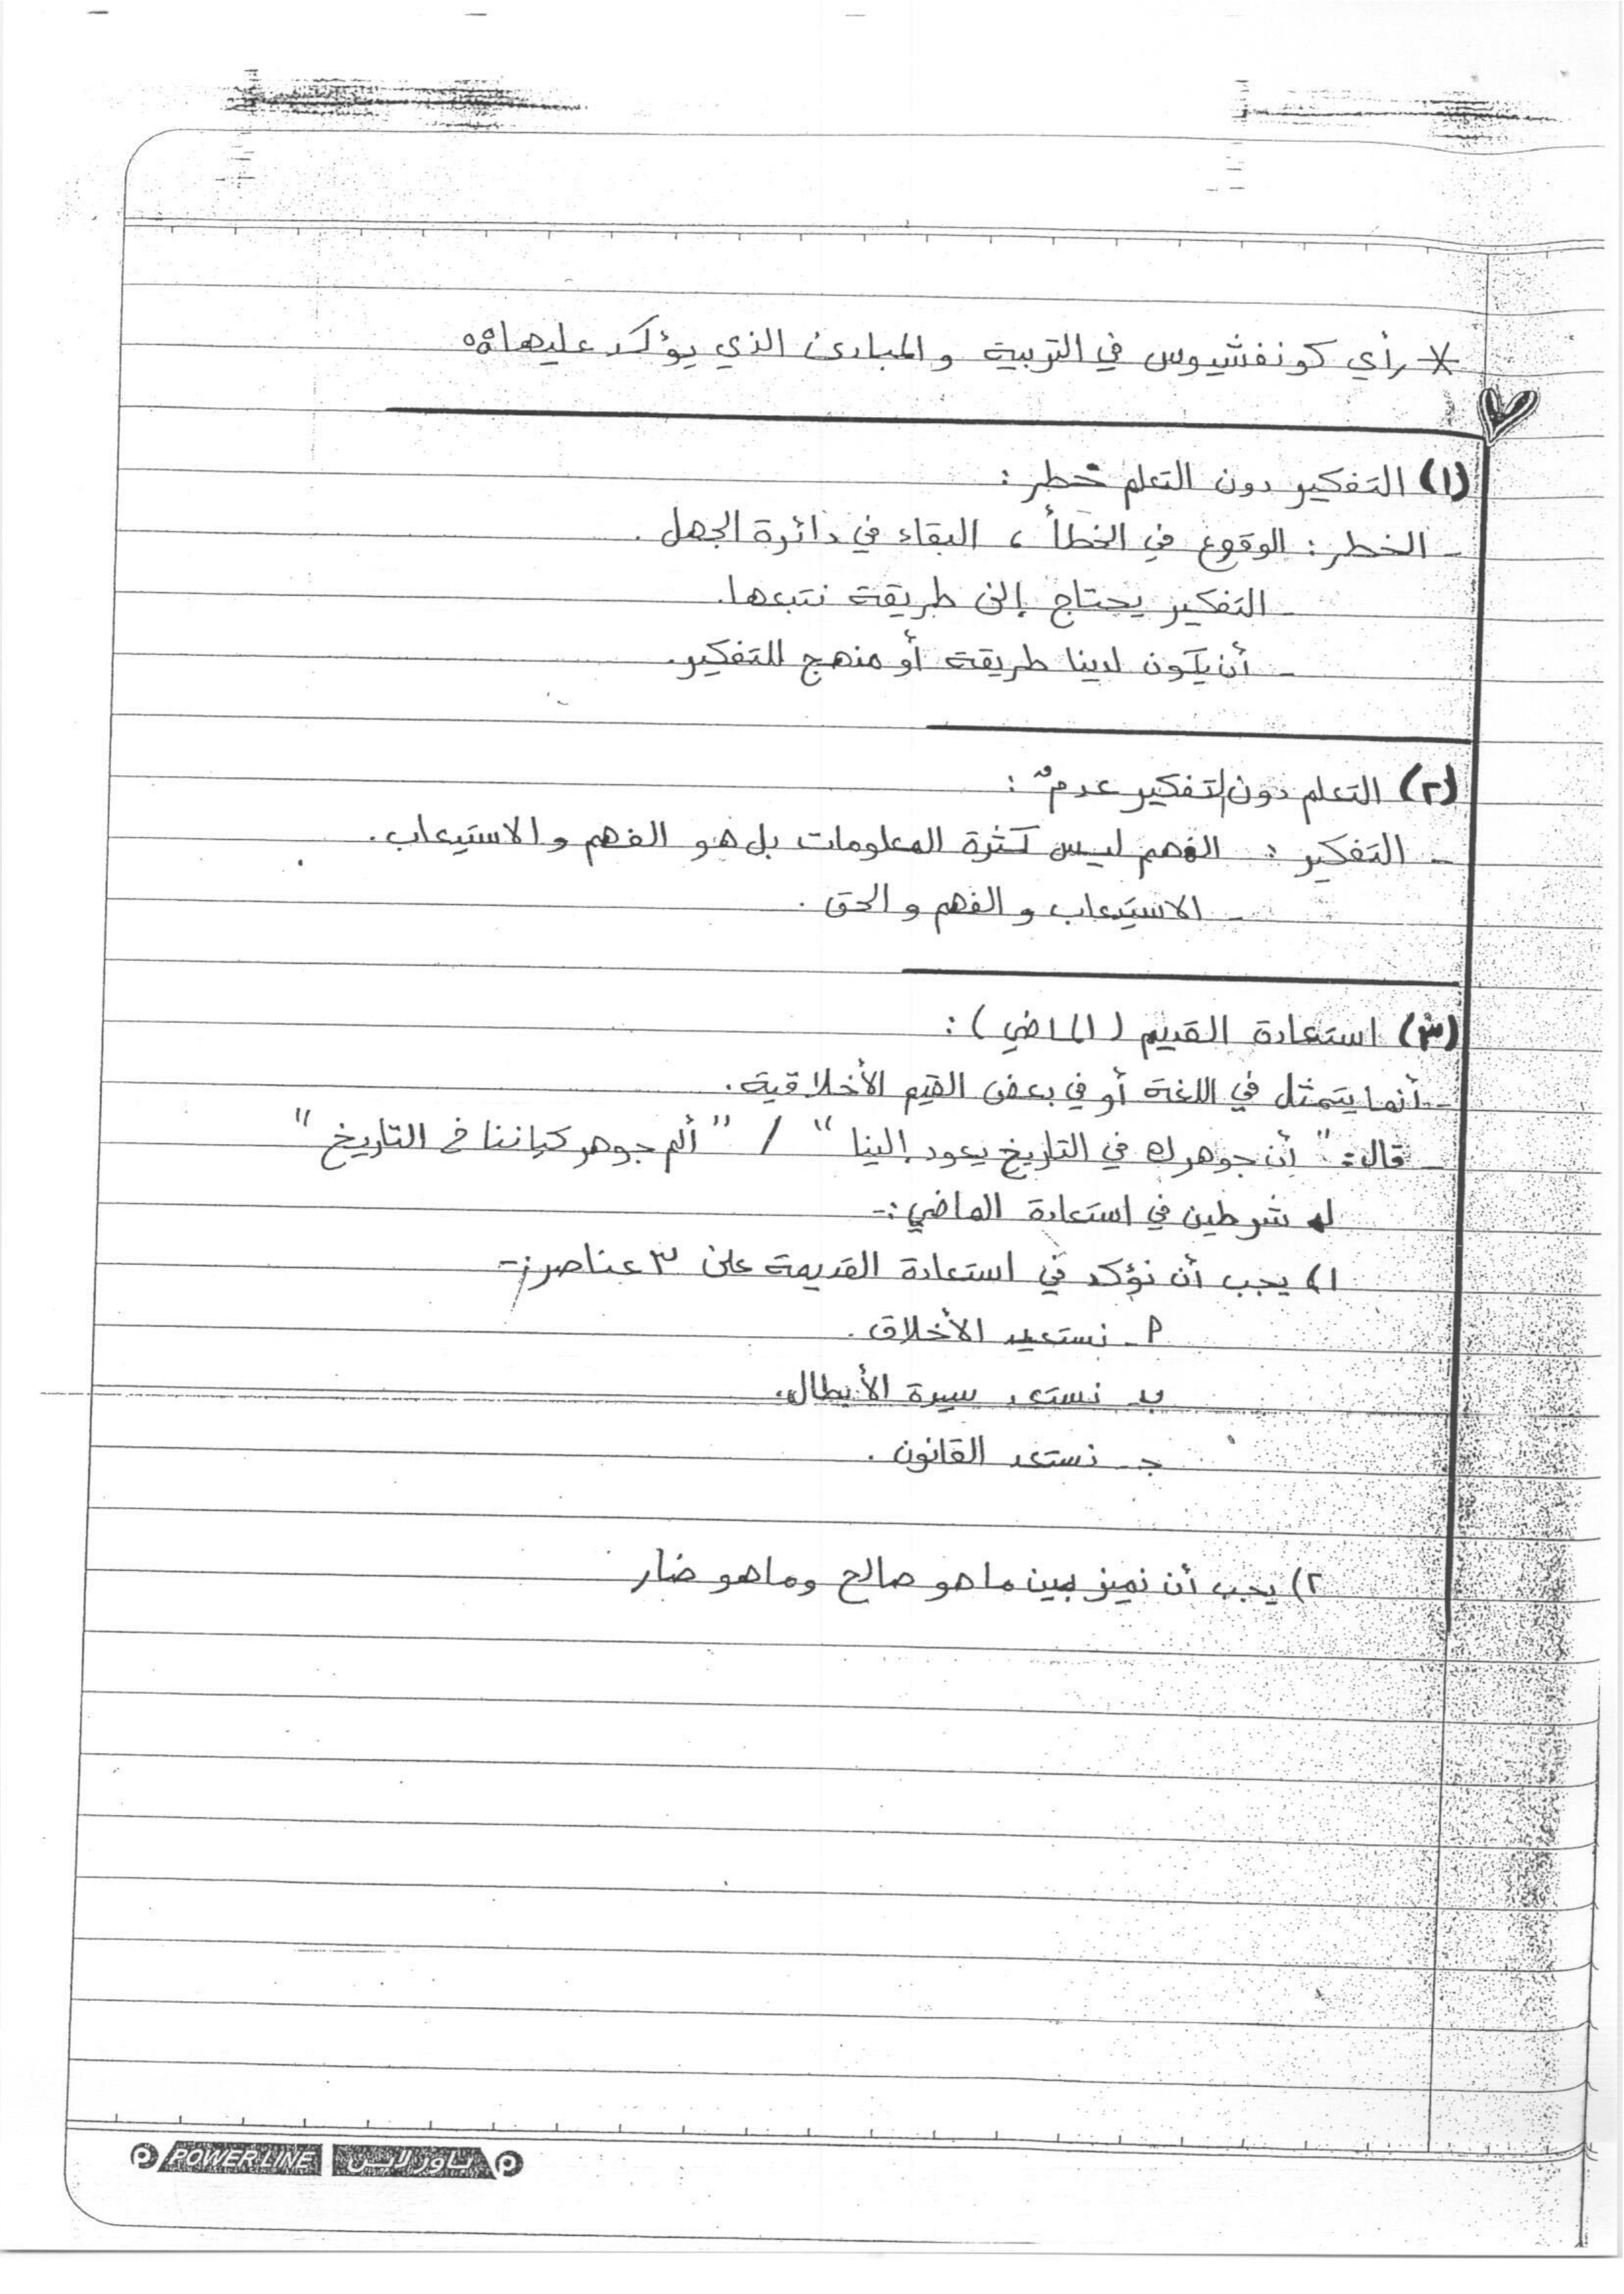 * رأي كونفشيوس في التربية والمبادئ الذي يؤكد عليها:
(١) التفكير دون التعلم خطر:
- الخطر: الوقوع في الخطأ، البقاء في دائرة الجهل.
- التفكير يحتاج إلى طريقة نتبعها.
- أن يكون لدينا طريقة أو منهج للتفكير.
(٢) التعلم دون التفكير عدم:
- التفكير: الفهم ليس كثرة المعلومات بل هو الفهم والاستيعاب.
- الاستيعاب والفهم والحق.
(٣) استعادة القديم (الماضي):
- أنما يتمثل في اللغة أو في بعض القيم الأخلاقية.
- قال: "أن جوهر في التاريخ يعود إلينا" / "جوهر التاريخ"
له شرطين في استعادة الماضي:-
١) يجب أن نؤكد في استعادة القديمة على ٣ عناصر:-
أ- نستعيد الأخلاق.
ب- نستعد سيرة الأبطال.
ج- نستعد القانون.
٢) يجب أن نميز بين ما هو صالح وما هو ضار
POWER LINE باور لاين